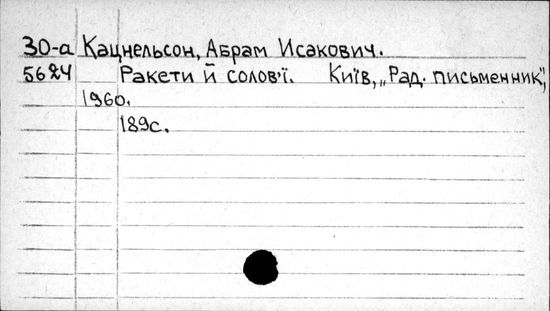 30-а Кацнельсон, Абрам Исакович.
5624 Ракети й солов'ї. Київ, „Рад. письменник",
1960.
189с.